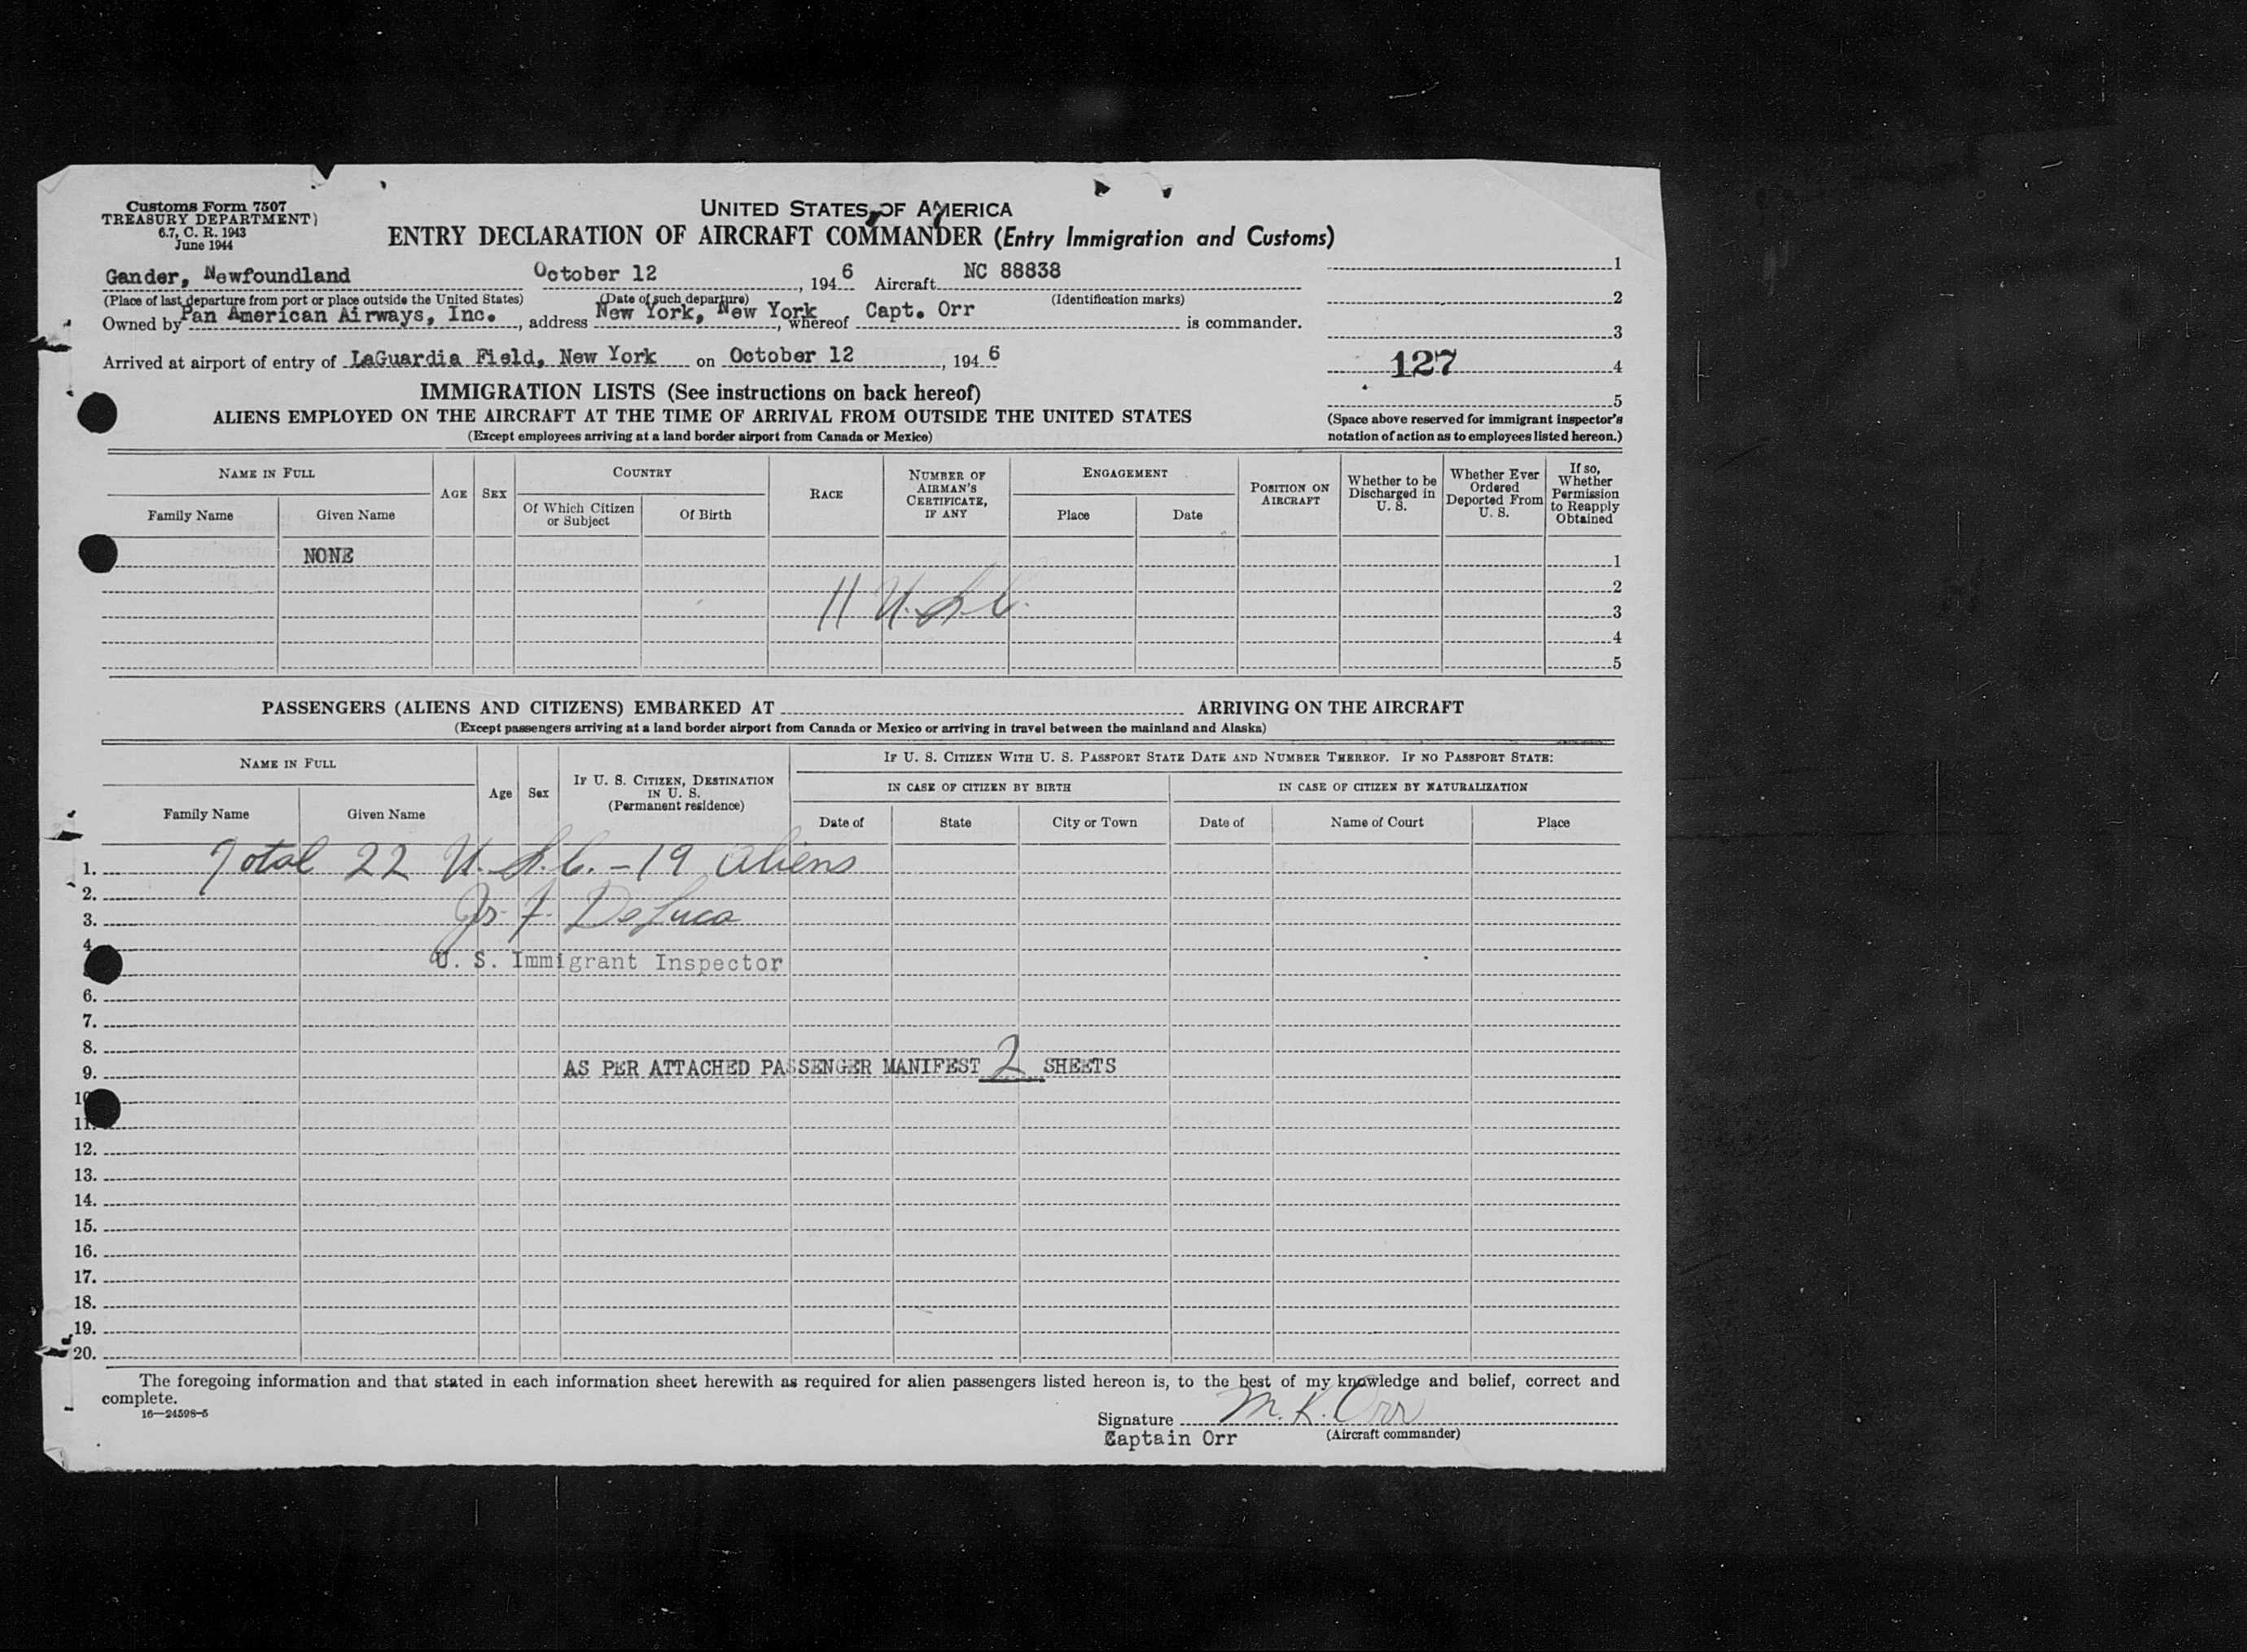 Customs Form 7507
TREASURY DEPARTMENT)
6.7, C. R. 1943
June 1944
UNITED STATES OF AMERICA
ENTRY DECLARATION OF AIRCRAFT COMMANDER (Entry Immigration and Customs)
Gander, Newfoundland October 12, 1946 Aircraft NC 88838
(Place of last departure from port or place outside the United States) (Date of such departure) (Identification marks)
Owned by Pan American Airways, Inc., address New York, New York, whereof Capt. Orr is commander.
Arrived at airport of entry of LaGuardia Field, New York on October 12, 1946
1
2
3
127 4
5
(Space above reserved for immigrant inspector's
notation of action as to employees listed hereon.)
IMMIGRATION LISTS (See instructions on back hereof)
ALIENS EMPLOYED ON THE AIRCRAFT AT THE TIME OF ARRIVAL FROM OUTSIDE THE UNITED STATES
(Except employees arriving at a land border airport from Canada or Mexico)
NAME IN FULL
Family Name Given Name
AGE
SEX
COUNTRY
Of Which Citizen or Subject
Of Birth
RACE
NUMBER OF AIRMAN'S CERTIFICATE, IF ANY
ENGAGEMENT
Place Date
POSITION ON AIRCRAFT
Whether to be Discharged in U. S.
Whether Ever Ordered Deported From U. S.
If so, Whether Permission to Reapply Obtained
NONE 1
2
11 U.S.C. 3
4
5
PASSENGERS (ALIENS AND CITIZENS) EMBARKED AT ARRIVING ON THE AIRCRAFT
(Except passengers arriving at a land border airport from Canada or Mexico or arriving in travel between the mainland and Alaska)
NAME IN FULL
Family Name Given Name
Age
Sex
IF U. S. CITIZEN, DESTINATION IN U. S.
(Permanent residence)
IF U. S. CITIZEN WITH U. S. PASSPORT STATE DATE AND NUMBER THEREOF. IF NO PASSPORT STATE:
IN CASE OF CITIZEN BY BIRTH
Date of State City or Town
IN CASE OF CITIZEN BY NATURALIZATION
Date of Name of Court Place
1. Total 22 U.S.C. - 19 Aliens
2.
3. F. DeLuca
4.
U. S. Immigrant Inspector
6.
7.
8.
9. AS PER ATTACHED PASSENGER MANIFEST 2 SHEETS
10
11.
12.
13.
14.
15.
16.
17.
18.
19.
20.
The foregoing information and that stated in each information sheet herewith as required for alien passengers listed hereon is, to the best of my knowledge and belief, correct and
complete.
16—24598-5
Signature M. K. Orr
Captain Orr (Aircraft commander)